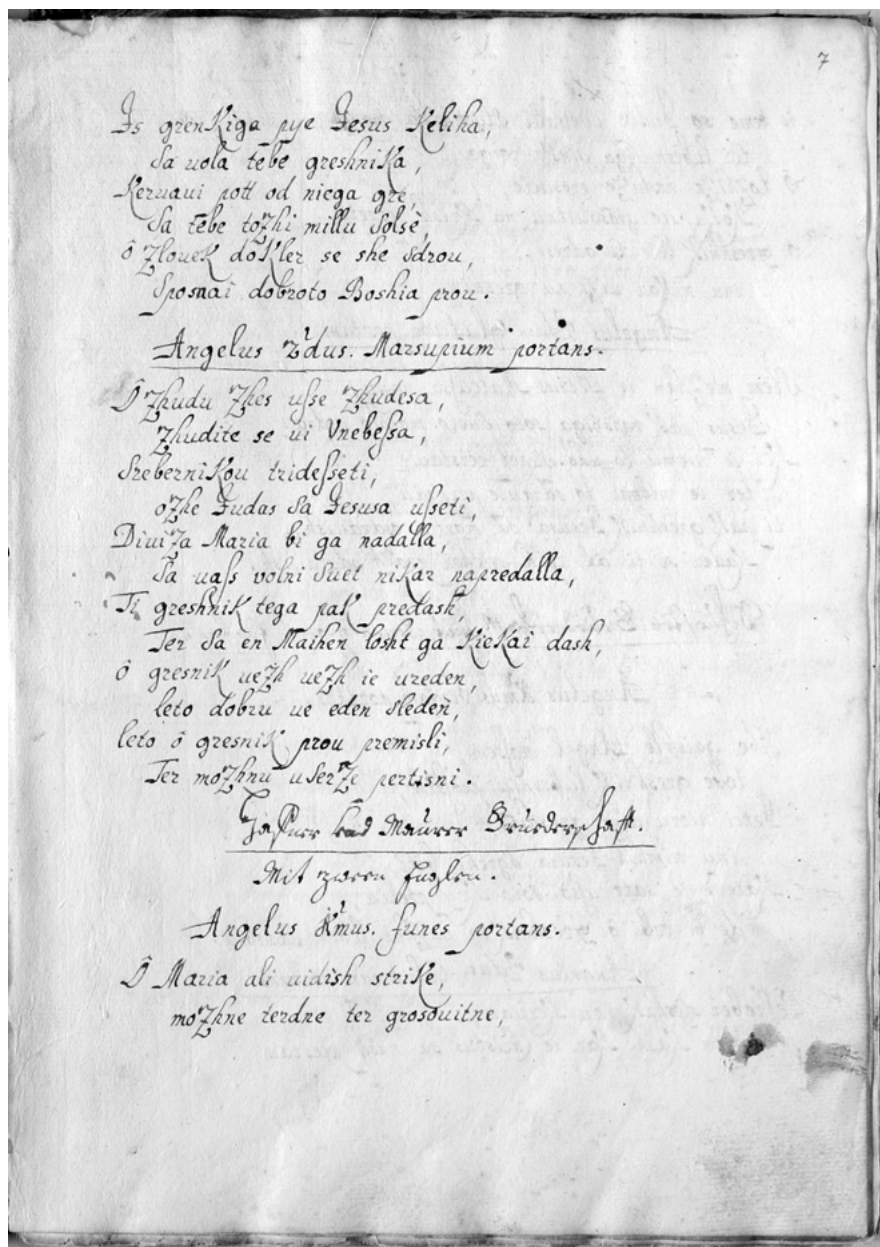 7
Is grenkiga pye Jesus Keliha,
Sa uola tebe greshnika,
Keruaui pott od niega gre,
Sa tebe tozhi millu Solse,
ô Zlouek dokler se she sdrou,
Sposnai dobroto Boshia prou.
Angelus 2dus. Marsupium portans.
Ô Zhudu Zhes usse Zhudesa,
Zhudite se ui Vnebessa,
Srebernikou tridesseti,
ozhe Judas Sa Jesusa usseti,
Diuiza Maria bi ga nadalla,
Sa uass volni Suet nikar napredalla,
Ti greshnik tega pak predash,
Ter Sa en Maihen losht ga kiekai dash,
ô gresnik uezh uezh ie ureden,
leto dobru ue eden sleden,
leto ô gresnik prou premisli,
Ter mozhnu userze pertisni.
Haffner und Maurer Bruederschafft.
Mit zween Englen.
Angelus 1mus. funes portans.
Ô Maria ali uidish strike,
mozhne terdne ter grosouitne,